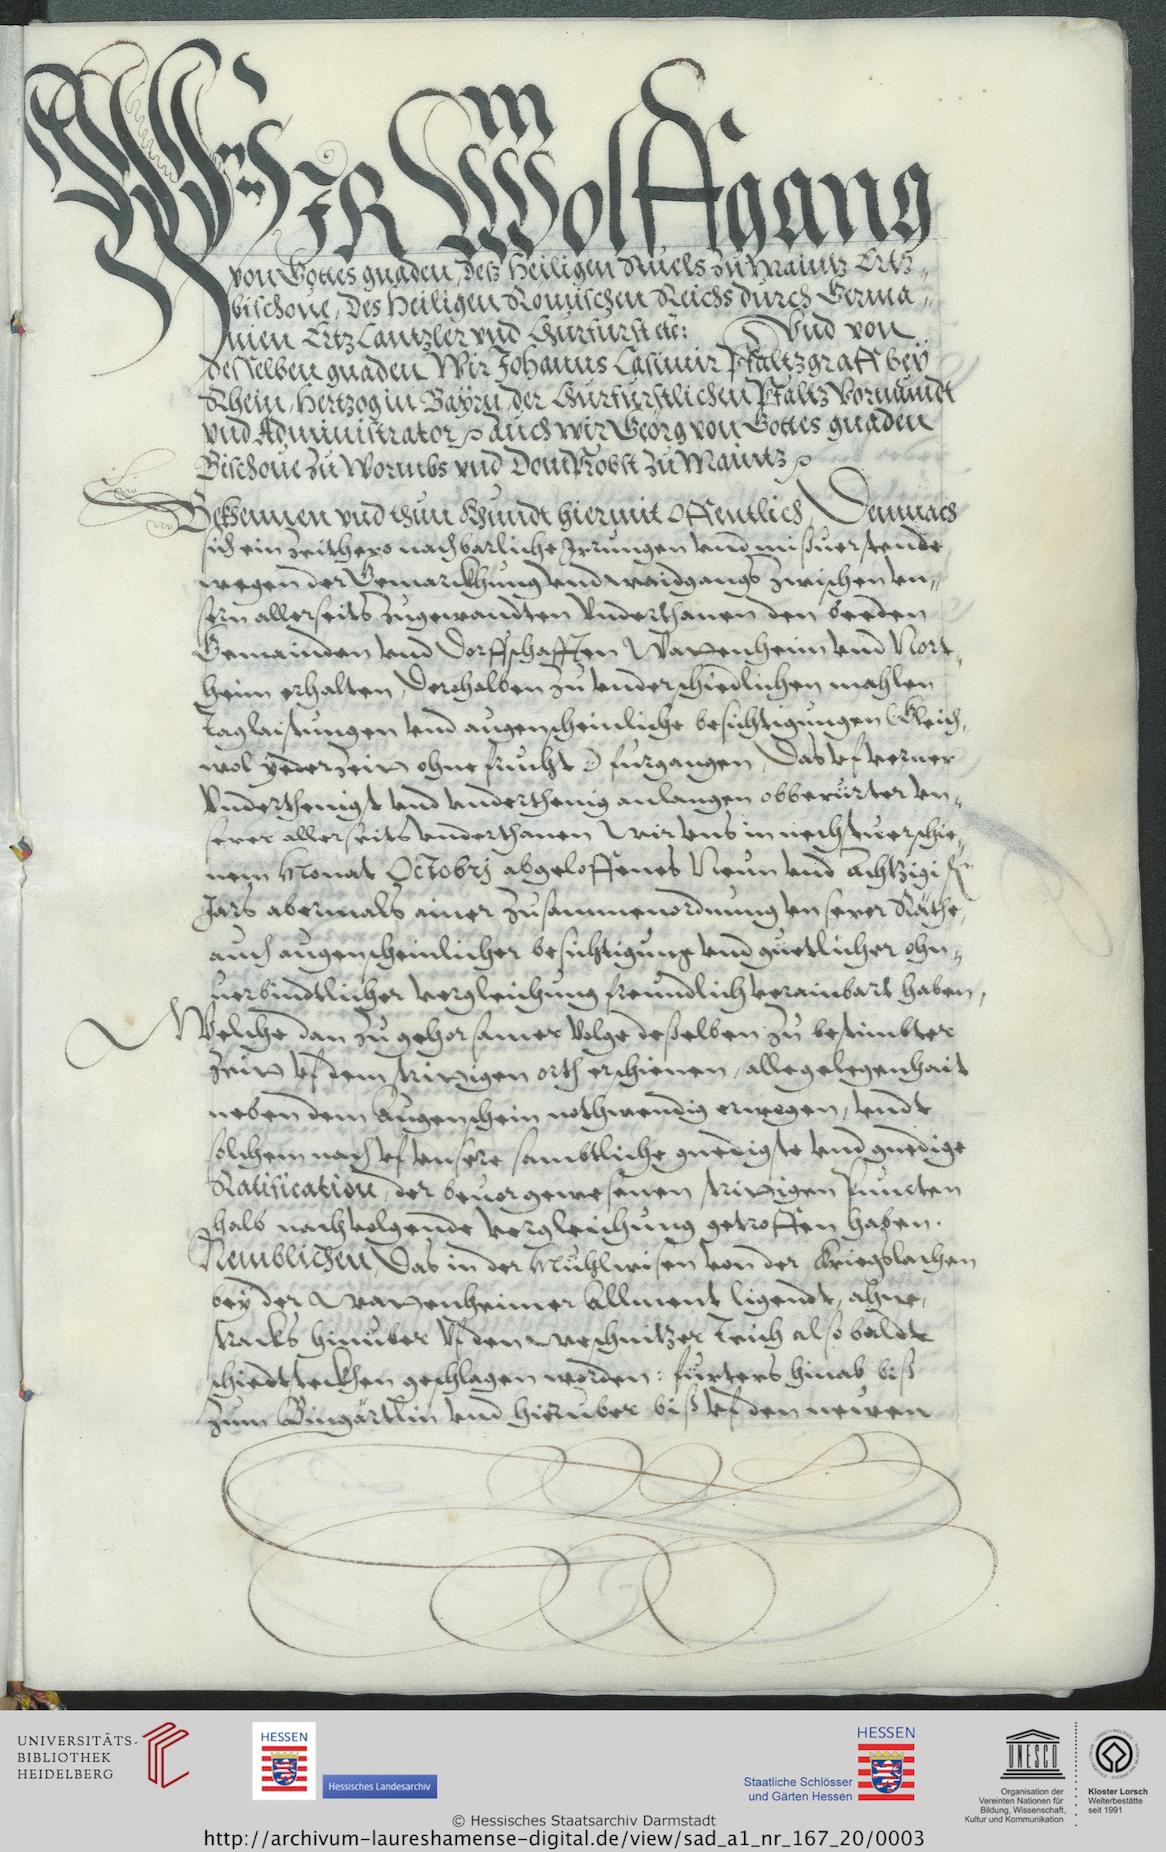 WIR Wolffgang
von Gottes gnaden, deß Heiligen Stuels zu Maintz Ertz„
bischoue, des Heiligen Romischen Reichs durch Germa„
nien Ertz Cantzler vnd Churfurst etc: Vnd von
desselben gnaden Wir Johanns Casimir Pfaltzgraff bey
Rhein, Hertzog in Bayrn, der Churfurstlichen Pfaltz Vormundt
vnd Administrator, auch wir Georg von Gottes gnaden
Bischoue zu Wormbs vnd DomProbst zu Maintz
Bekhennen vnd thun Khundt hiermit offentlich, Demnach
sich ein Zeithero nachbarliche Irrungen vnnd mißuerstende
wegen der Gemarckhung vnnd waidgangs zwischen vn„
sern allerseits zugewandten Vnderthanen den beeden
Gemainden vnnd Dorffschafften Wattenheim vnnd Nort„
heim erhalten, Derohalben zu vnderschiedlichen mahlen
taglaistungen vnnd augenscheinliche besichtigungen (Gleich„
wol yederzeit ohne frucht) furgangen, Das vf ferner
Vnderthenigst vnnd vnderthenig anlangen obberürter vn„
serer allerseits vnderthanen Wir vns in nechstuerschie„
nem Monat Octobrj abgeloffenes Neun vnnd Achtzigist
Jars abermals ainer Zusammenordnung vnserer Räthe,
auch augenscheinlicher besichtigung vnnd guetlicher ohn„
uerbindtlicher vergleichung freundlich verainbart haben,
Welche dan zu gehorsamer Volge desselben zu bestimbter
Zeit vf dem strittigen orth erschienen, alle gelegenhait
neben dem Augenschein nothwendig erwegen, vnndt
solchem nach vf vnsere sambtliche gnedigste vnnd gnedige
Ratification, der beuor gewesenen strittigen Puncten
halb nachuolgende vergleichung getroffen haben.
Nemblichen, Das in der Mühlwisen von der Kriegslachen
bey der Wattenheimer Allment ligendt, ahne„
stracks hinuber vf den Weschnitzer Teich also baldt
schiedtsteckhen geschlagen worden: fürters hinab biß
zum Bingärtlin vnnd hieruber biß vf den neuen
UNIVERSITÄTS-
BIBLIOTHEK
HEIDELBERG
HESSEN
Hessisches Landesarchiv
HESSEN
Staatliche Schlösser
und Gärten Hessen
UNESCO
Organisation der
Vereinten Nationen für
Bildung, Wissenschaft,
Kultur und Kommunikation
Kloster Lorsch
Welterbestätte
seit 1991
© Hessisches Staatsarchiv Darmstadt
http://archivum-laureshamense-digital.de/view/sad_a1_nr_167_20/0003